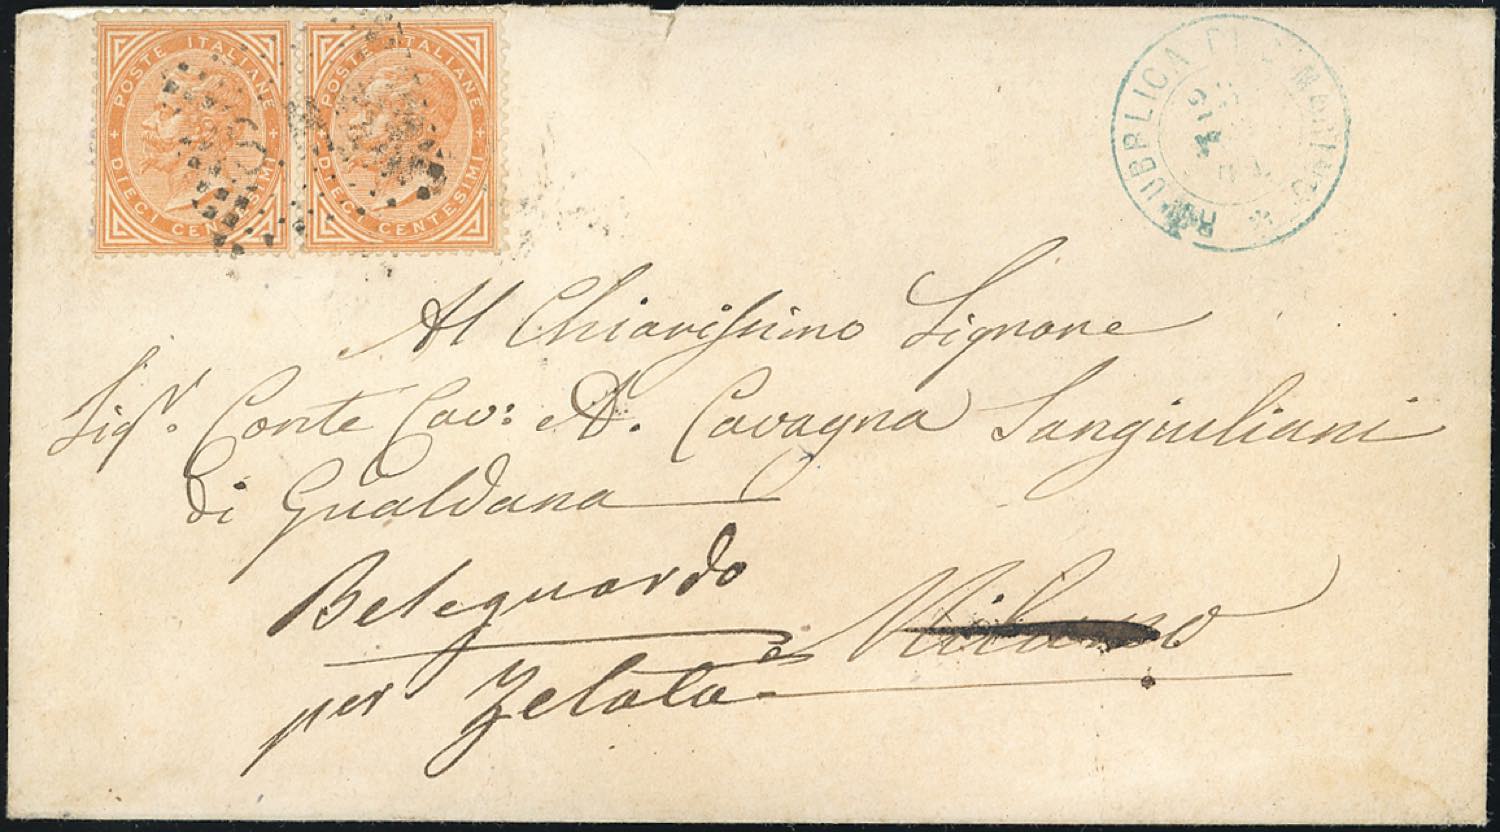 POSTE ITALIANE
DIECI CENTESIMI
POSTE ITALIANE
DIECI CENTESIMI
REPUBBLICA DI S. MARINO
GIU
Al Chiarissimo Signore
Sigr. Conte Cav: A. Cavagna Sangiuliani
di Gualdana
Milano
Bereguardo
per Zelata